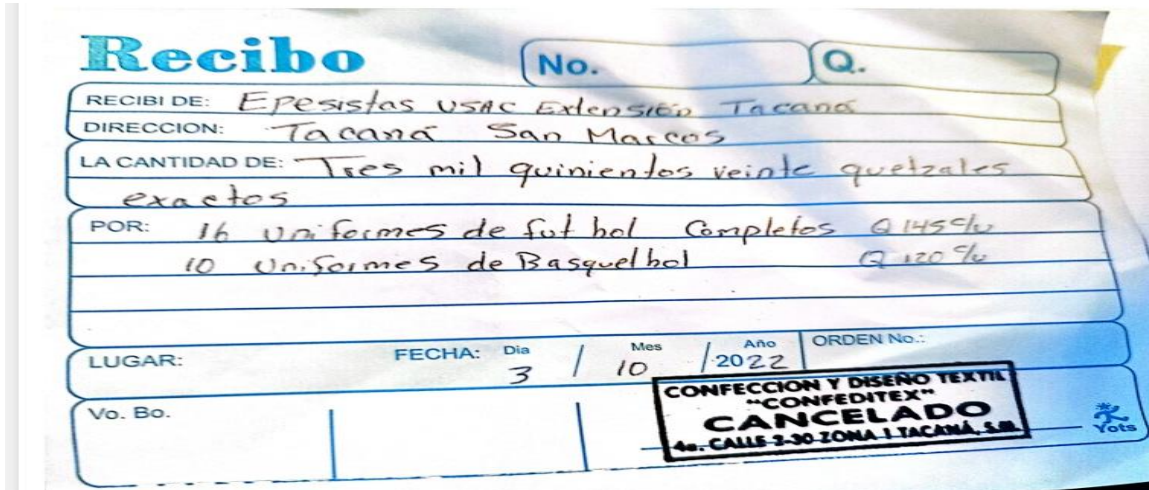 Recibo
No.
Q.
RECIBI DE: Epesistas USAC Extensión Tacaná
DIRECCION: Tacaná San Marcos
LA CANTIDAD DE: Tres mil quinientos veinte quetzales
exactos
POR: 16 Uniformes de fut bol Completos Q 145 c/u
10 Uniformes de Basquetbol Q 120 c/u
LUGAR: FECHA: Dia 3 / Mes 10 / Año 2022 ORDEN No.:
Vo. Bo.
CONFECCION Y DISEÑO TEXTIL
"CONFEDITEX"
CANCELADO
4a. CALLE 2-30 ZONA 1 TACANÁ, S.M.
Yots